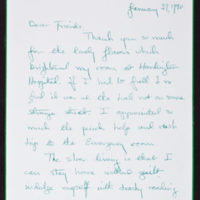 January 27, 1980
Dear Friends,
Thank you so much
for the lovely flowers which
brightened my room at Huntington
Hospital. If I had to fall I'm
glad it was at the hall not on some
strange street. I appreciated so
much the quick help and
trip to the Emergency room.
The silver lining is that I
can stay home without guilt
indulge myself with reading